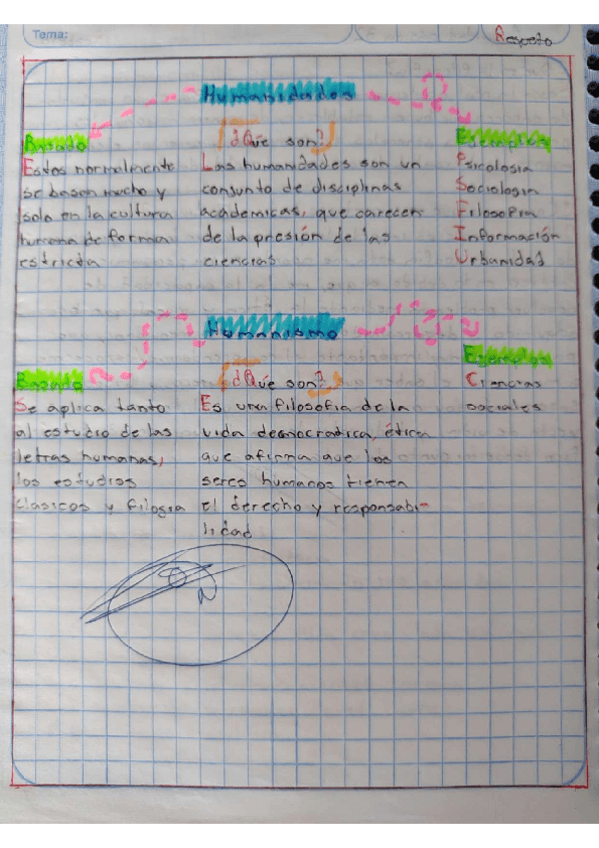 Tema:
Respeto
Humanidades
Basado
Estos normalmente
se basen mucho y
solo en la cultura
humana de forma
estricta
¿Qué son?
Las humanidades son un
conjunto de disciplinas
academicas, que carecen
de la presión de las
ciencias
Ejemplos
Psicologia
Sociologia
Filosofia
Información
Urbanidad
Humanismo
Basado
Se aplica tanto
al estudio de las
letras humanas,
los estudios
clasicos y filogia
¿Qué son?
Es una filosofia de la
vida democratica, ética
que afirma que los
seres humanos tienen
el derecho y responsabi-
lidad
Ejemplos
Ciencias
sociales